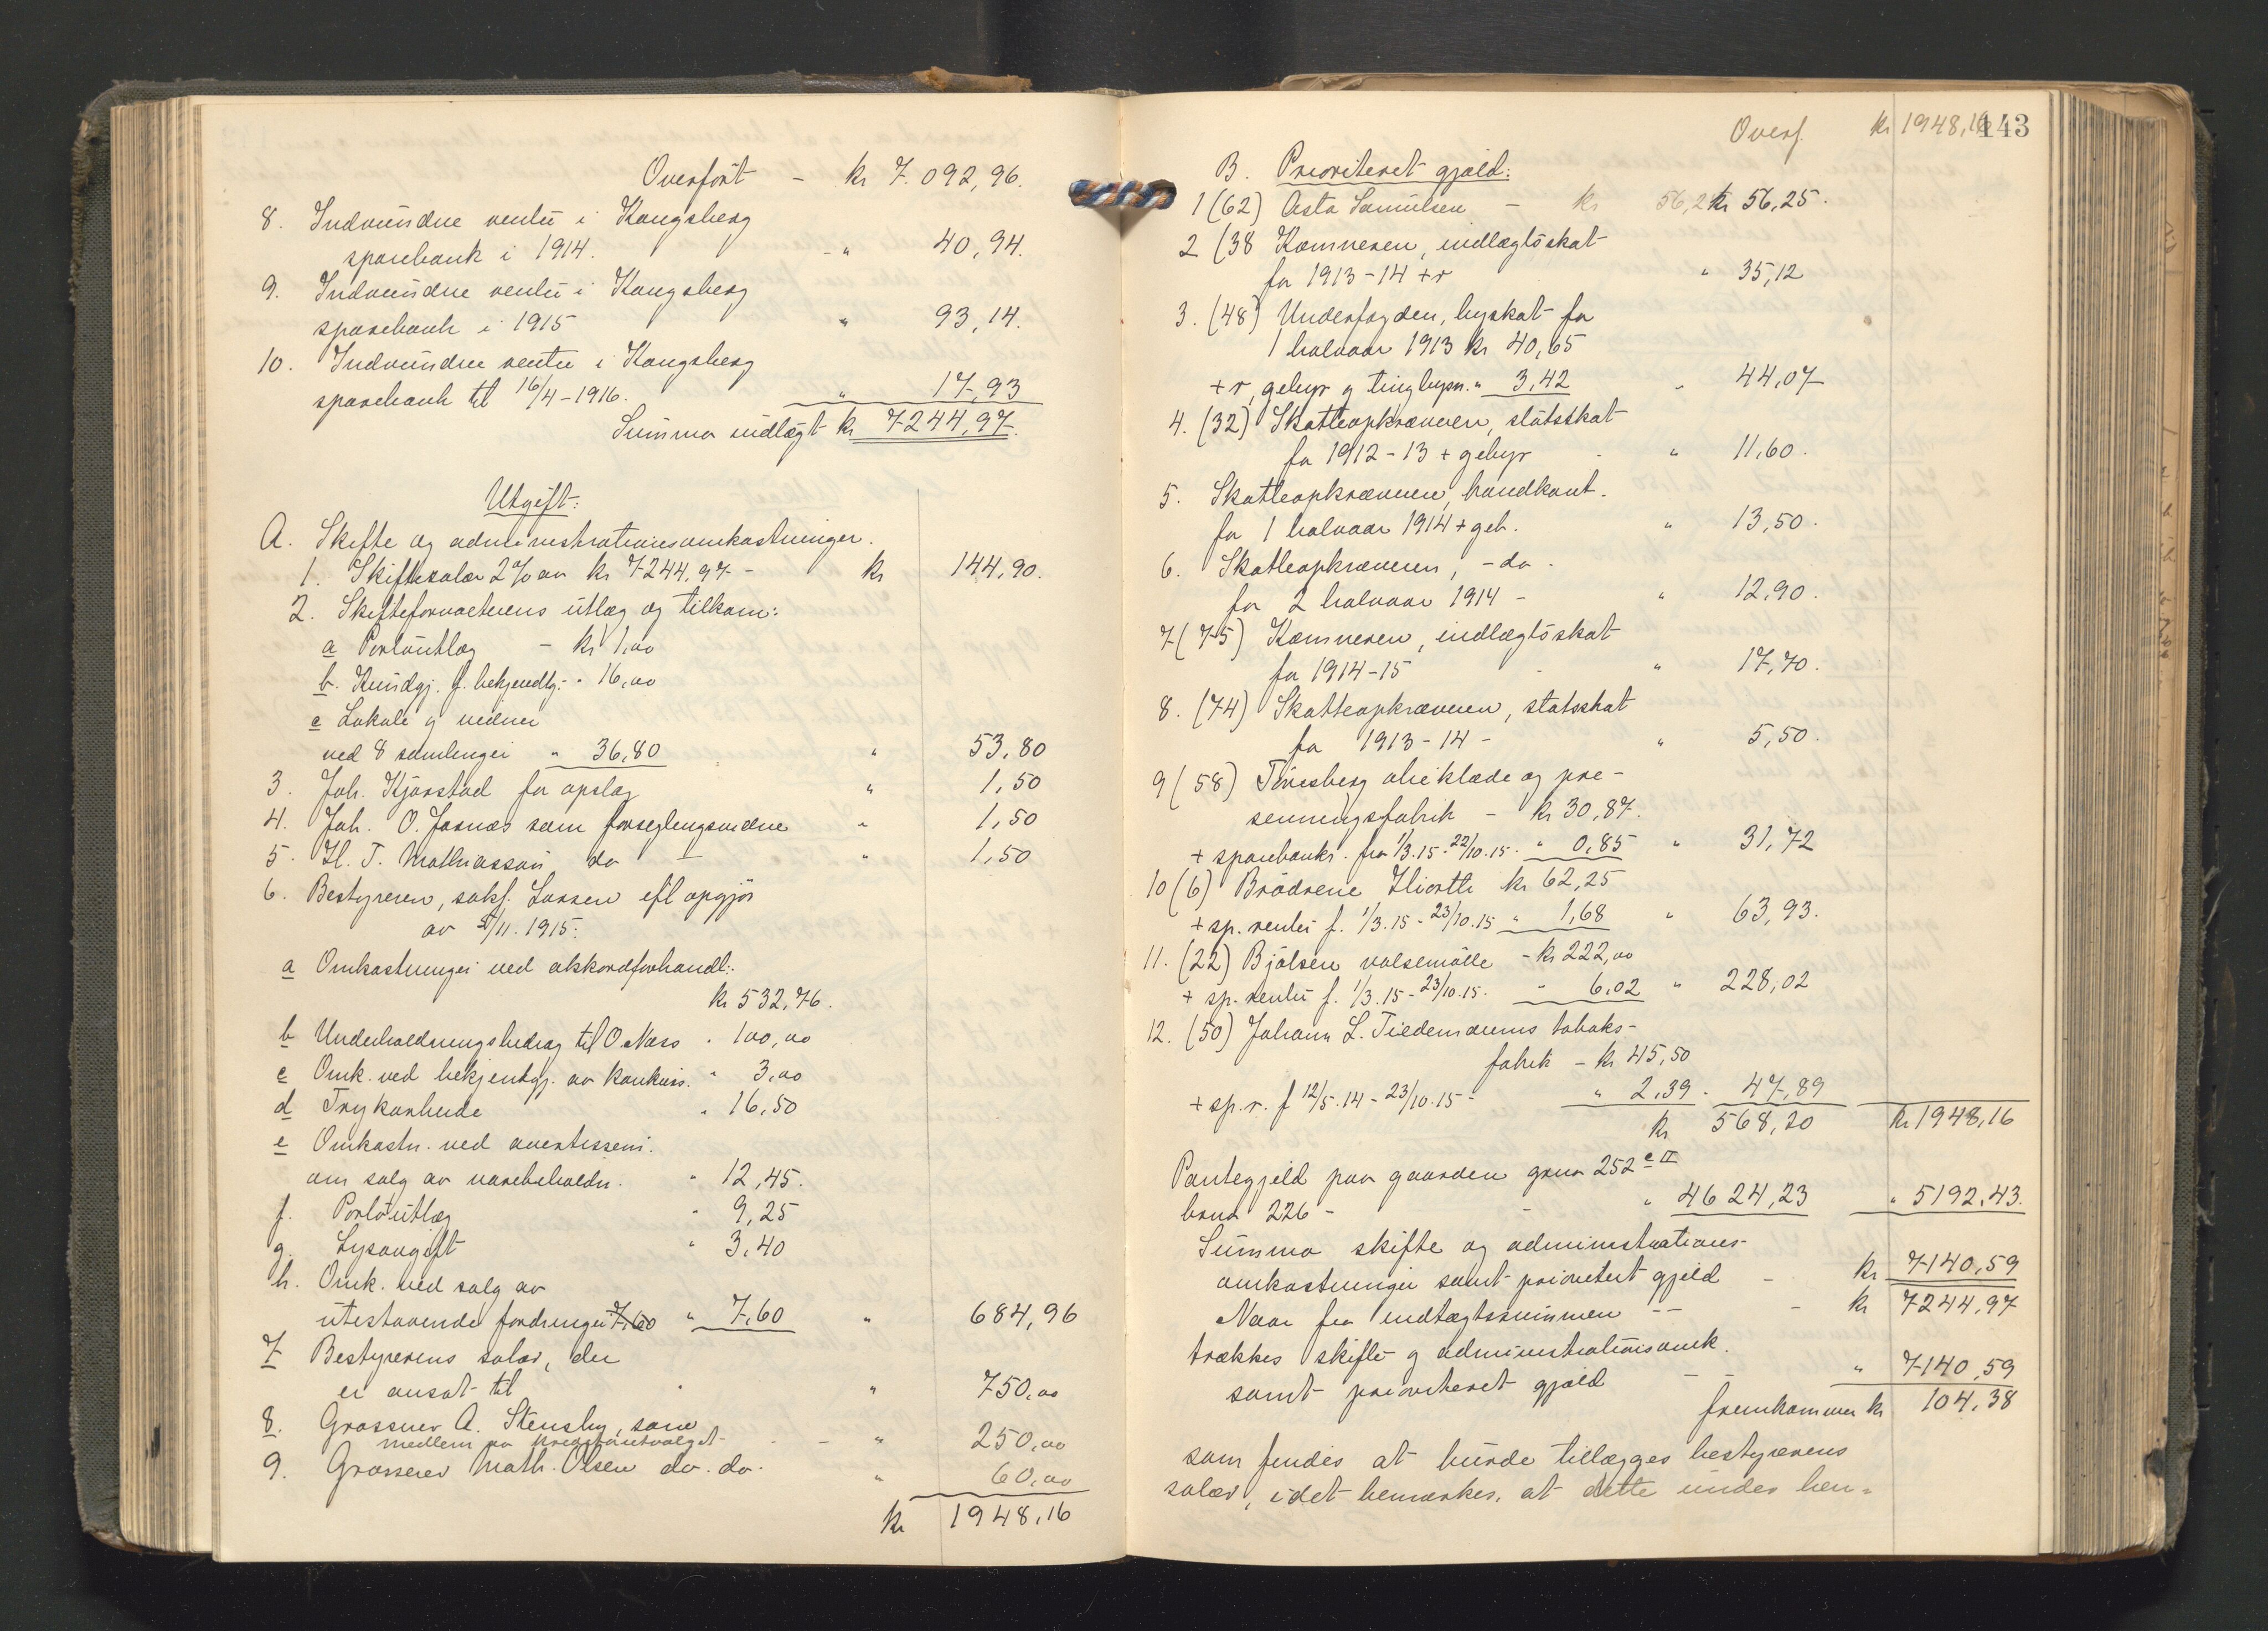 Overført - kr 7.092,96.
8. Indvundne renter i Kongsberg
sparebank i 1914. - " 40,94.
9. Indvundne renter i Kongsberg
sparebank i 1915 " 93,14.
10. Indvundne renter i Kongsberg
sparebank til 16/4-1916. " 17,93
Summa indtægt kr 7244,97.
Utgift:
A. Skifte og administrationsomkostninger.
1. Skiftesalær 2% av kr 7244,97 - kr 144,90.
2. Skifteforvalterens utlæg og tilkom:
a Portoutlæg - kr 1,00
b. Kundgj. & bekjendtg: " 16,00
c Lokale og vidner
ved 8 samlinger " 36,80 " 53,80
3. Joh. Kjørstad for opslag " 1,50
4. Joh. O. Josnæs som forseglingsvidne " 1,50
5. H. T. Mathiassen do - " 1,50
6. Bestyreren, sakf. Larsen efl opgjør
av /11. 1915:
a Omkostninger ved akkordforhandl:.
kr 532,76.
b Underholdningsbidrag til O. Næss " 100,00
c Omk. ved bekjentgj. av konkurs. " 3,00
d Trykarbeide " 16,50
e Omkostn. ved avertissem.
om salg av varebeholdn. " 12,45.
f. Portoutlæg " 9,25
g. Lysavgift " 3,40
h. Omk. ved salg av
utestaaende fordringer 7,60 " 7,60 " 684,96
7 Bestyrerens salær, der
er ansat til " 750,00
8. Grosserer A. Stensby, som
medlem av kreditorutvalget - " 250,00
9. Grosserer Math. Olsen do. do. " 60,00
kr 1948,16
Overf. kr 1948,16 143
B. Prioritert gjæld:
1 (62) Asta Samuelsen - kr 56,2 kr 56,25.
2 (38 Kæmneren, indtægtsskat
for 1913-14 + r " 35,12
3. (48) Underfogden, byskat for
1 halvaar 1913 kr 40,65
+ r, gebyr og tinglysn. " 3,42 " 44,07
4. (32) Skatteopkræveren, statsskat
for 1912-13 + gebyr - " 11,60.
5. Skatteopkræveren, brandkont.
for 1 halvaar 1914 + geb. " 13,50.
6. Skatteopkræveren, - do -
for 2 halvaar 1914 - " 12,90.
7 (75) Kæmneren, indtægtsskat
for 1914-15 - " 17,70.
8. (74) Skatteopkræveren, statsskat
for 1913-14 - " 5,50.
9 (58) Tønsberg oljeklæde og pre-
senningsfabrik - kr 30,87.
+ sparebankr. fra 1/3.15-22/10.15. " 0,85 " 31,72
10 (6) Brødrene Hiorth kr 62,25
+ sp. renter f. 1/3.15-23/10.15 " 1,68 " 63,93.
11. (22) Bjølsen valsemølle - kr 222,00
+ sp. renter f. 1/3.15-23/10.15. " 6,02 " 228,02
12. (50) Johann L. Tiedemanns tobaks-
fabrik - kr 45,50
+ sp. r. f 12/5.14-23/10.15 - " 2,39. 47,89
kr 568,20 kr 1948,16
Pantegjeld paa gaarden grno 252 e II
brno 226 - - " 4624,23 " 5192,43.
Summa skifte og administrations-
omkostninger samt prioritert gjeld - kr 7140,59
Naar fra indtægtssummen - - - kr 7244,97
trækkes skifte og administrationsomk.
samt prioriteret gjæld - - " 7140,59
fremkommer kr 104,38
som findes at burde tillægges bestyrerens
salær, idet bemærkes, at dette under hen-